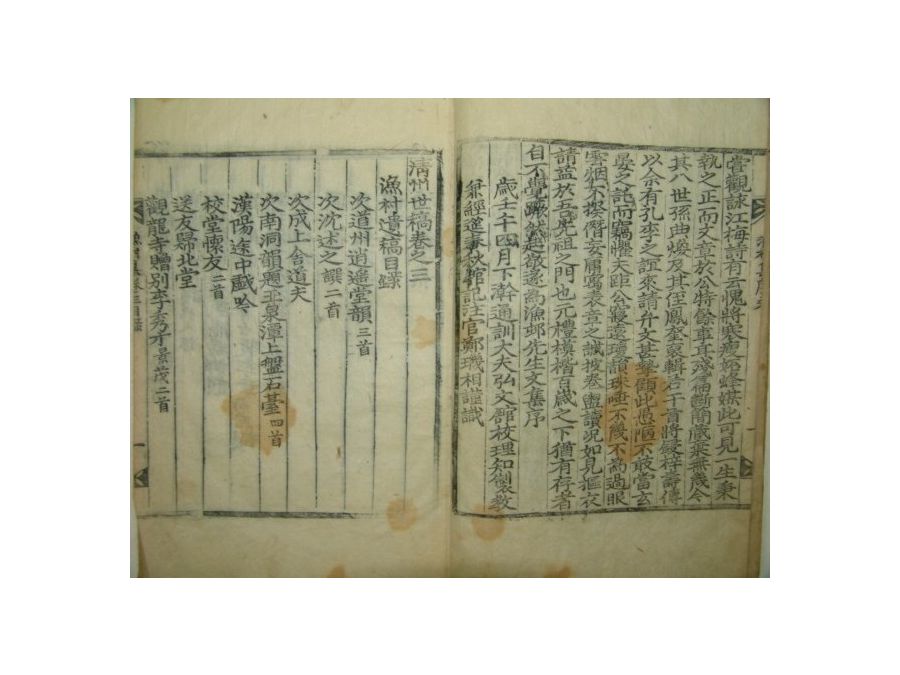 嘗觀詠江梅詩有云愧將寒瘦妬蜂媒此可見一生秉
執之正一而文章於公特餘事耳殘編斷簡歲葉無幾今
其八世孫曲煥及其侄鳳奎裒輯若干首將鋟梓壽傳
以余有孔李之誼來請弁文甚摯顧此愚陋不敢當玄
晏之託而竊懼大距公寢遠瓊韻珠唾不幾不爲過眼
雲烟不揆僭妄屬寫衰音之誠披卷盥讀況如見摳衣
請益於吾先祖之門也元禮模楷百歲之下猶有存者
自不覺蹶然起敬遂爲漁邨先生文集序
歲壬午四月下澣通訓大夫弘文館校理知製敎
兼經筵春秋館記注官鄭璣相謹識
清州世稿卷之三
漁村遺稿目錄
次道州逍遙堂韻 三首
次沈述之 譔 二首
次成上舍道夫
次南洞韻題玉泉潭上盤石臺 四首
漢陽途中感吟
校堂懷友 二首
送友歸北堂
觀龍寺贈別李秀才 景茂 二首
一